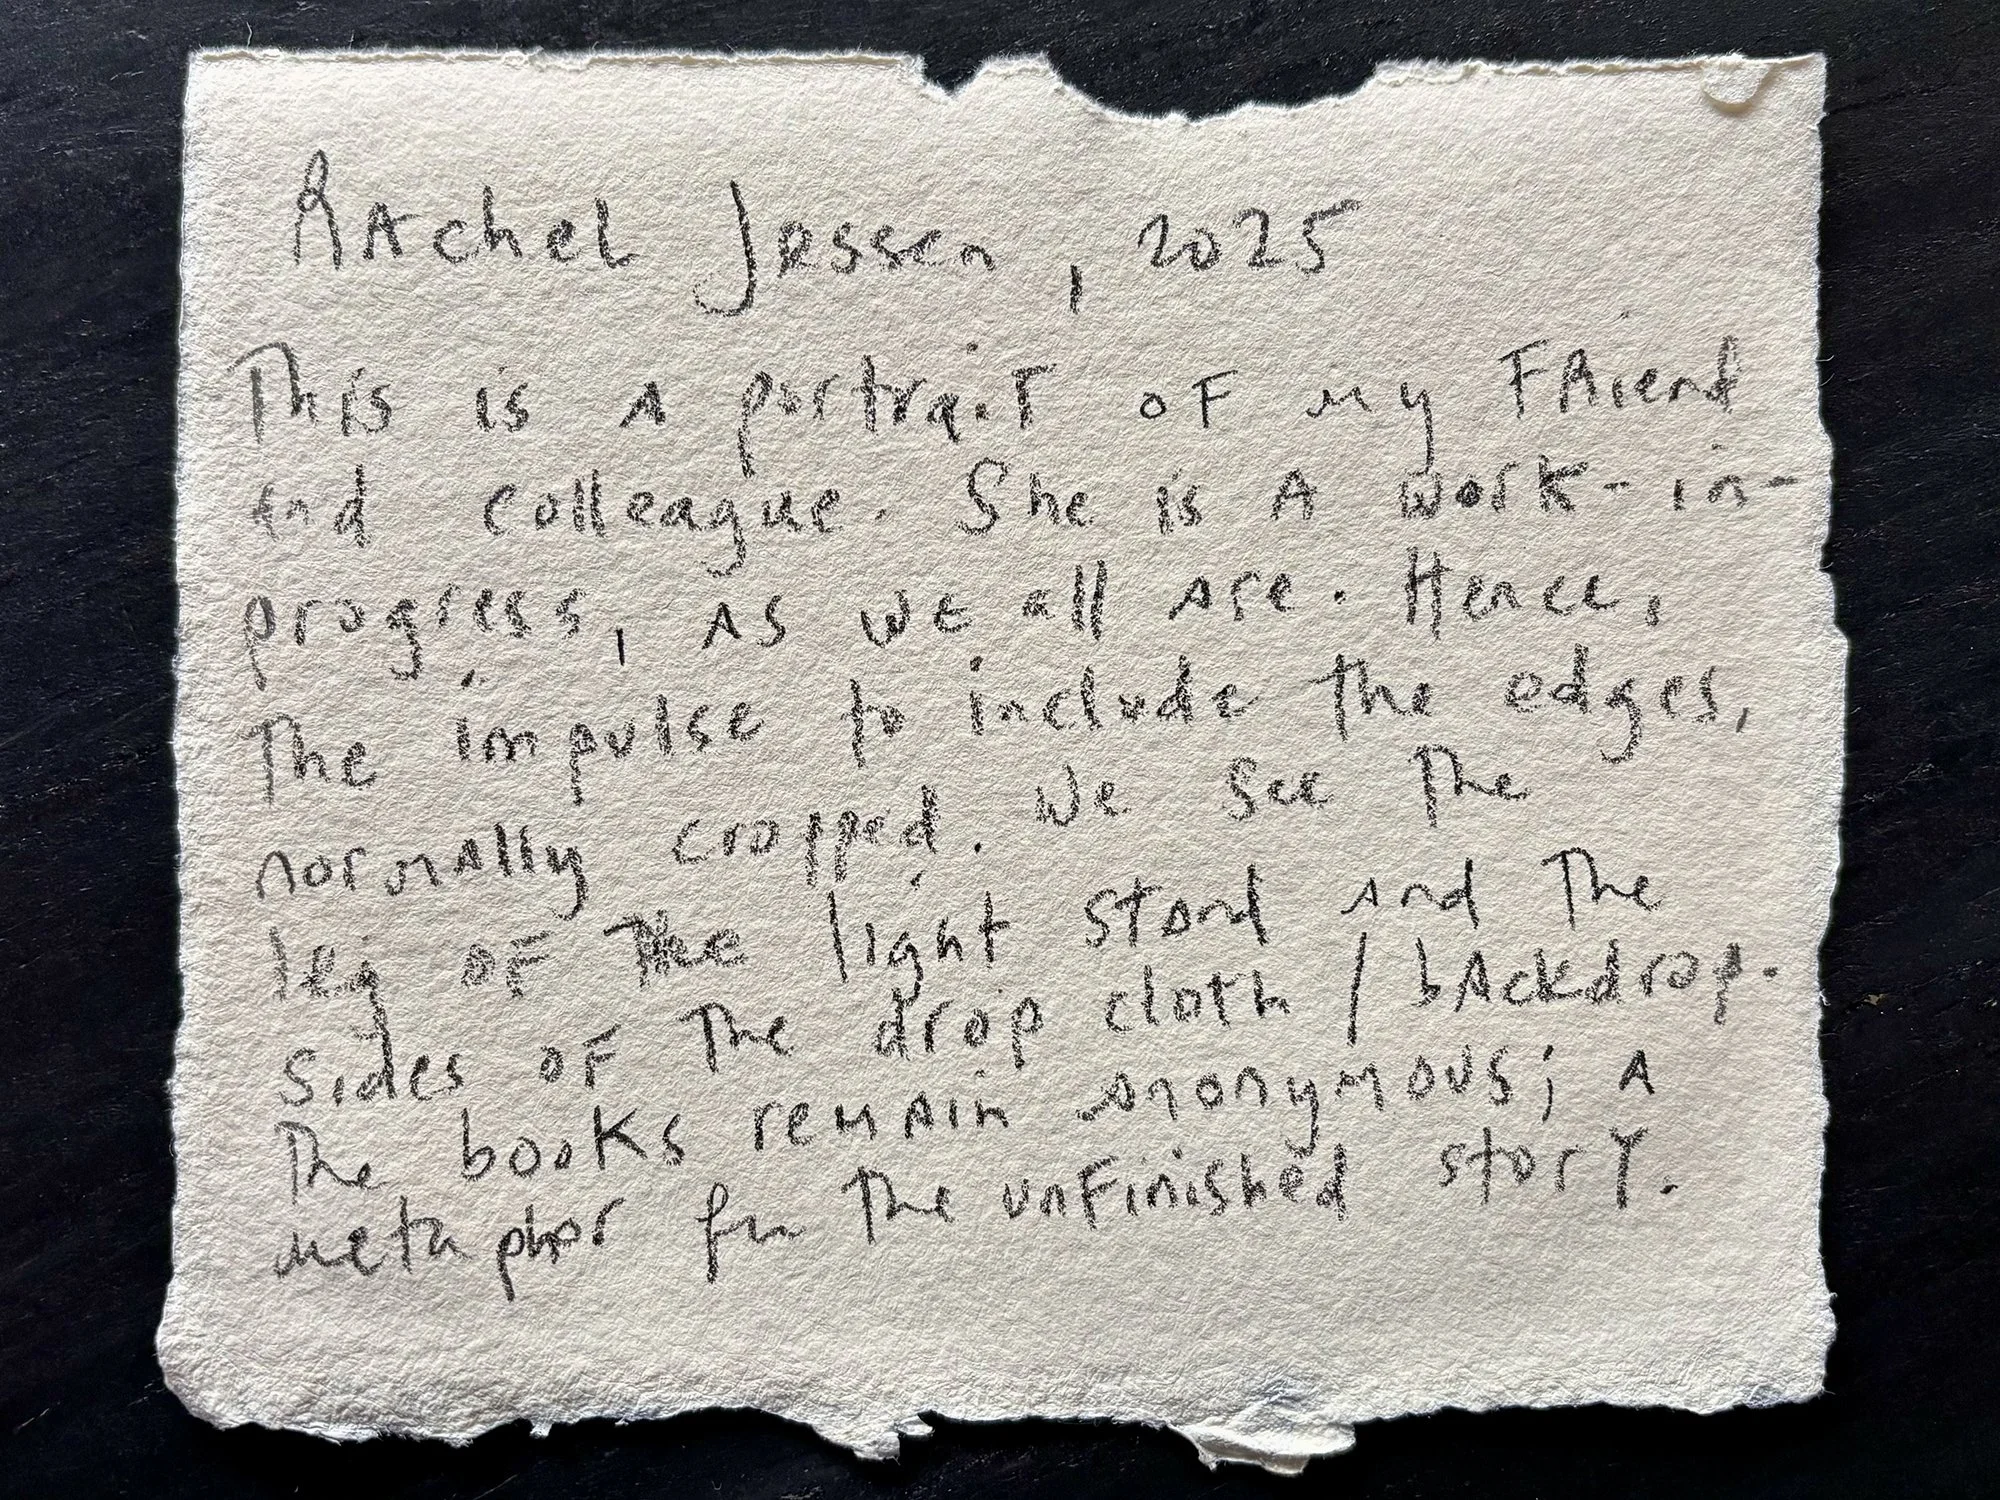 Rachel Jessen, 2025
This is a portrait of my friend
and colleague. She is a work-in-
progress, as we all are. Hence,
the impulse to include the edges,
normally cropped. We see the
leg of the light stand and the
sides of the drop cloth / backdrop.
The books remain anonymous; a
metaphor for the unfinished story.